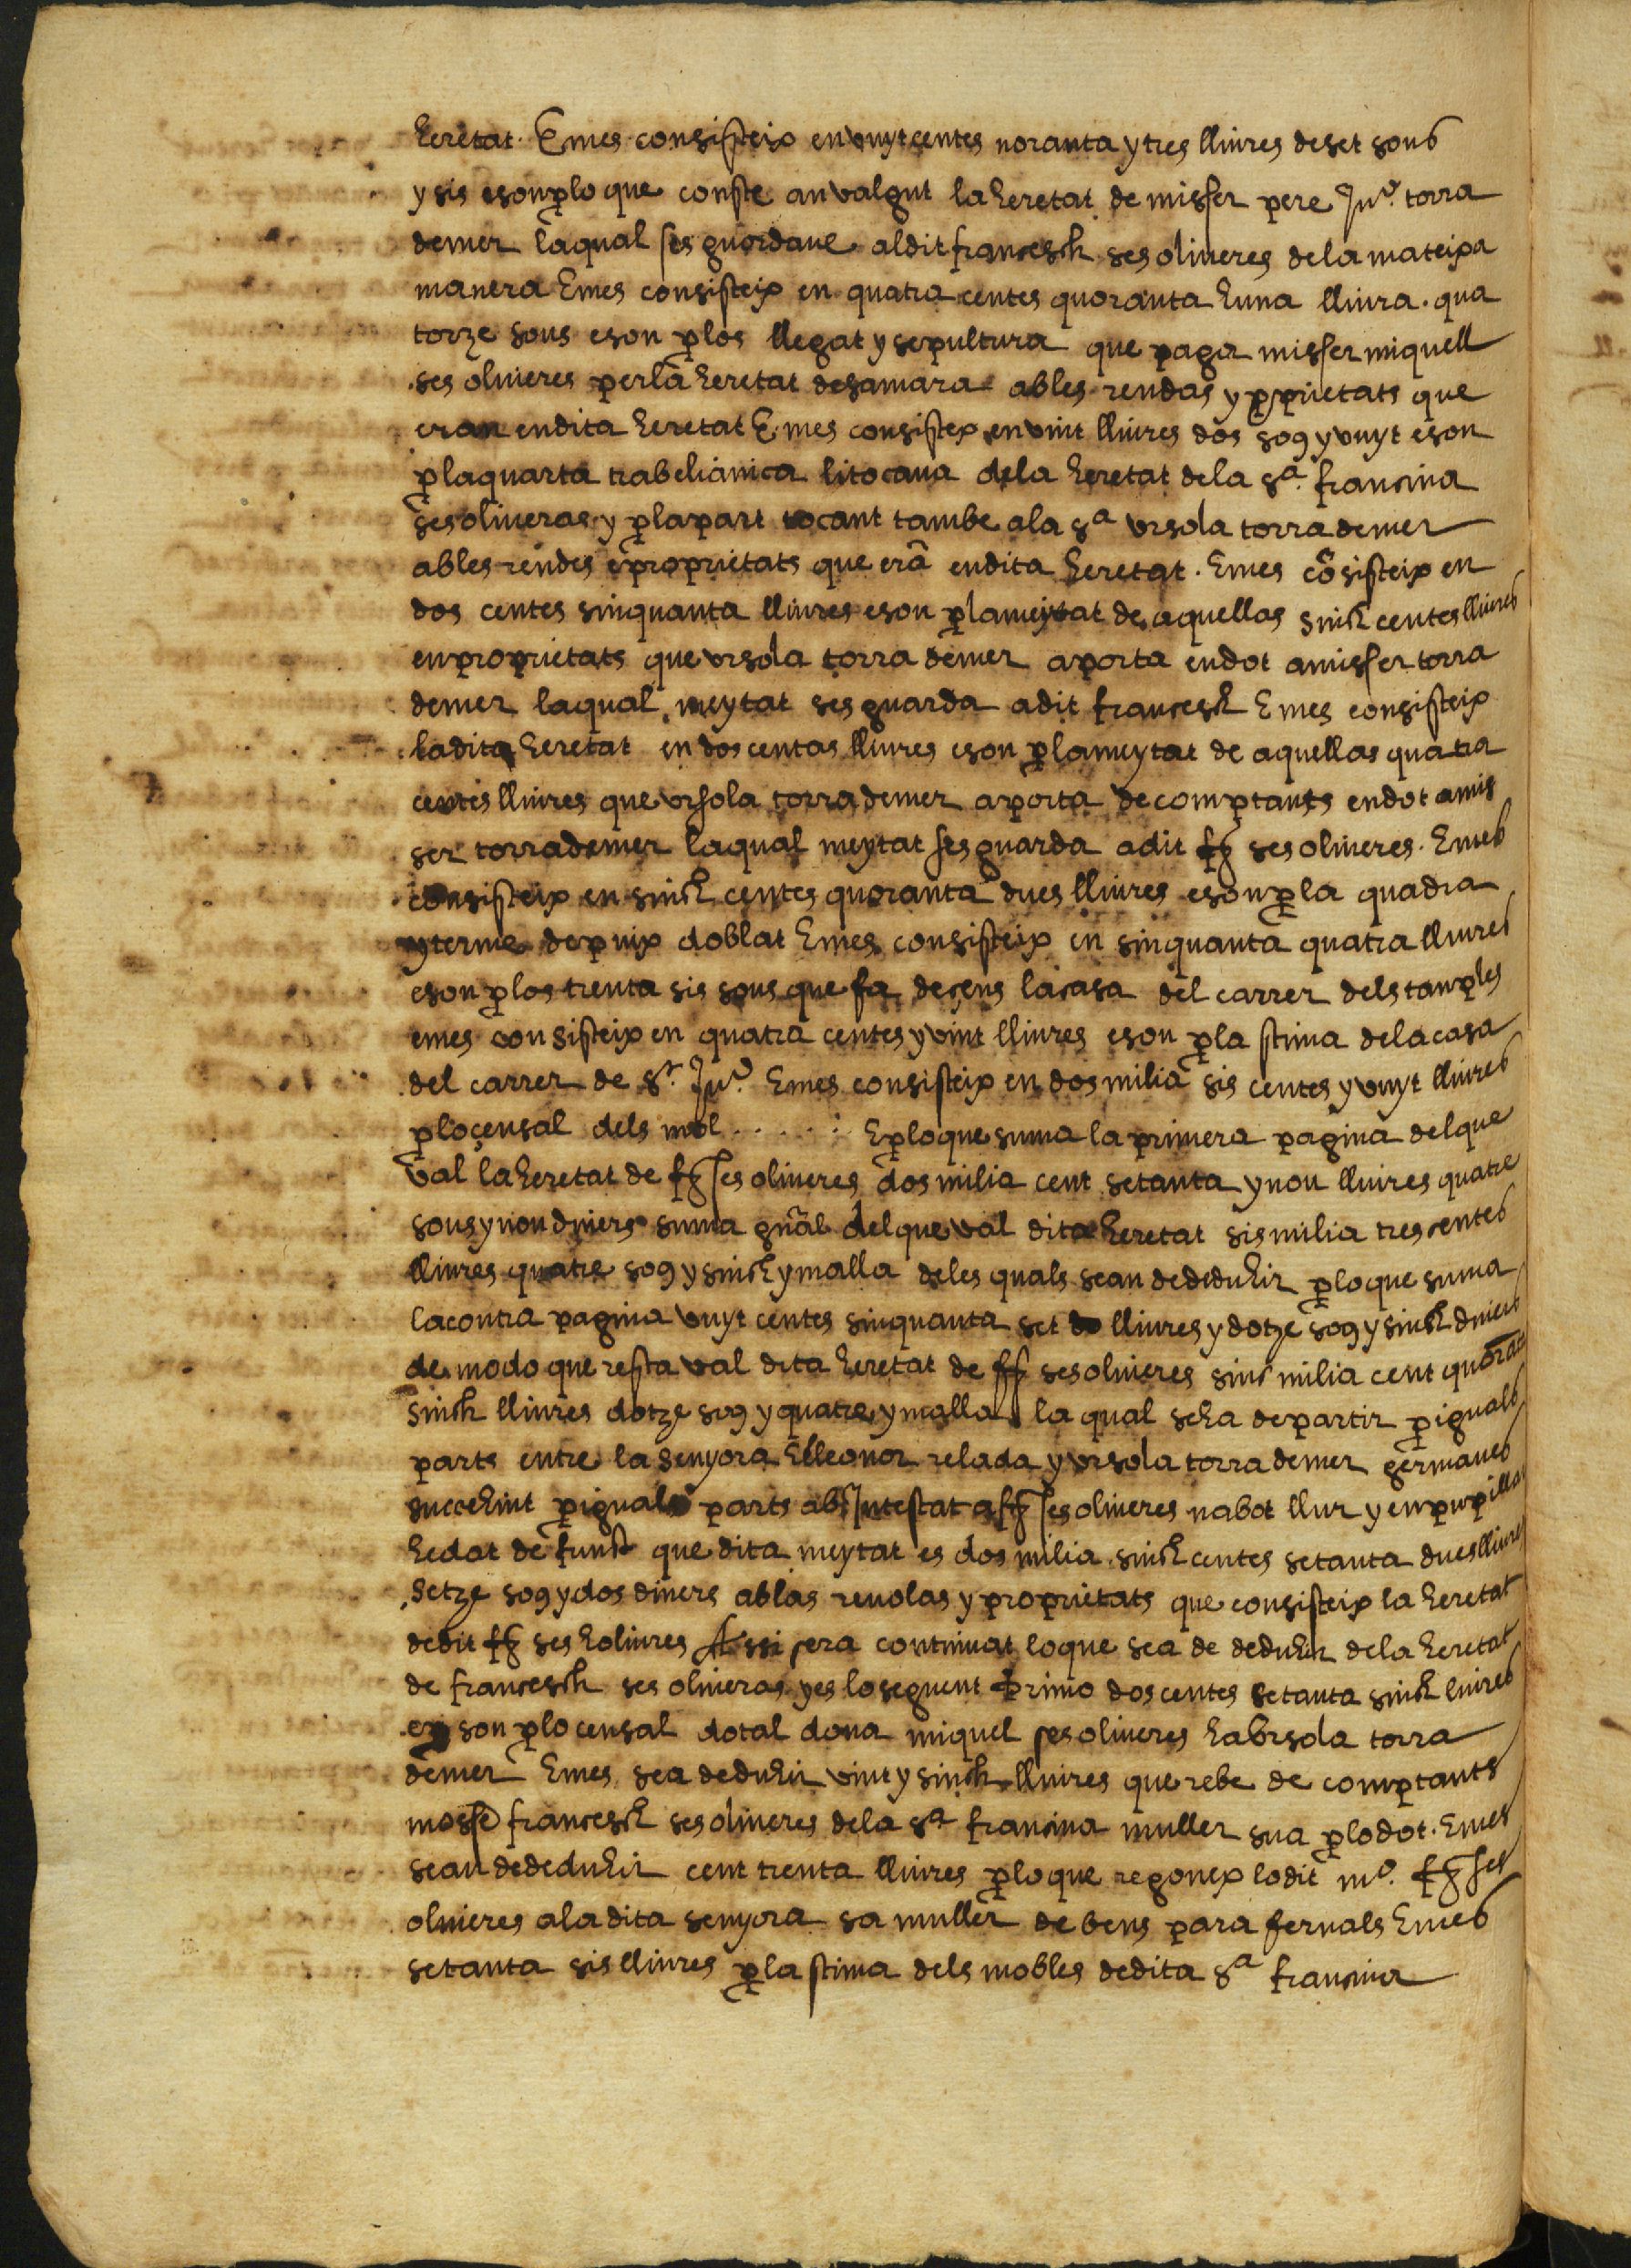 heretat. E mes consisteix en vuyt centes noranta y tres lliures deset sous
y sis e son p̱ lo que conste an valgut la heretat de misser pere Juº. torra
demer la qual ses guordave al dit francesch ses oliueres de la mateixa
manera E mes consisteix en quatra centes quoranta huna lliura. qua
torze sous e son p̱ los llegat y sepultura que paga misser miquell
ses oliueres per la heretat desamara ab les rendas y p̱prietats que
eran en dita heretat E mes consistex en vint lliures dos sos y vuyt e son
p̱ la quarta trabelianica li tocaua de la heretat de la sª. francina
ses oliueras y p̱ la part tocant tambe a la sª vrsola torrademer
ab les rendes e proprietats que erā en dita heretat. E mes cōsisteix en
dos centes sinquanta lliures e son p̱ la meytat de aquellas sinch centes lliures
en proprietats que vrsola torra demer aporta en dot a misser torra
demer la qual meytat ses guarda a dit francesch E mes consisteix
la dita heretat en dos centas lliures e son p̱ la meytat de aquellas quatra
centes lliures que vrsola torrademer aporta de comptants en dot a mis
ser torrademer la qual meytat ses guarda a dit ff ses oliueres. E mes
consisteix en sinch centes quoranta dues lliures e son p̱ la quadra
y terme de puix doblat E mes consisteix en sinquanta quatra lliures
e son p̱ los trenta sis sous que fa de sens la casa del carrer dels tamples
e mes consisteix en quatra centes y vint lliures e son p̱ la stima de la casa
del carrer de sᵗ. Juº. E mes consisteix en dos milia sis centes y vuyt lliures
p̱ lo çensal dels mol . . . . . : E p̱ lo que suma la primera pagina del que
val la heretat de ff ses oliueres dos milia cent setanta y nou lliures quatre
sous y nou diners suma gñal del que val dita heretat sis milia tres centes
lliures quatre sos y sinch y malla de les quals sean de deduhir p̱ lo que suma
la contra pagina vuyt centes sinquanta set lliures y dotze sos y sinch diners
de modo que resta val dita heretat de ff ses oliueres sinc milia cent quorāta
sinch lliures dotze sos y quatre y malla la qual seha de partir p̱ iguals
parts entre la senyora Elleonor relada y vrsola torra demer germanes
succehint p̱ iguals parts ab intestat a ff ses oliueres nabot llur y en pupillar
hedat defunct que dita meytat es dos milia sinch centes setanta dues lliures
setze sos y dos diners ab las rendas y proprietats que consisteix la heretat
de dit ff ses holiures Assi sera continuat lo que sea de deduhir de la heretat
de francesch ses oliueras y es lo seguent Primo dos centes setanta sinch liures
e son p̱ lo censal dotal dona miquel ses oliueres ha vrsola torra
demer E mes sea deduhir vint y sinch lliures que rebe de comptants
mosse francesch ses oliueres de la sª francina muller sua p̱ lo dot. E mes
sean de deduhir cent trenta lliures p̱ lo que regonex lo dit mº. ff ses
oliueres a la dita senyora sa muller de bens para fernals E mes
setanta sis lliures p̱ la stima dels mobles de dita sª francina